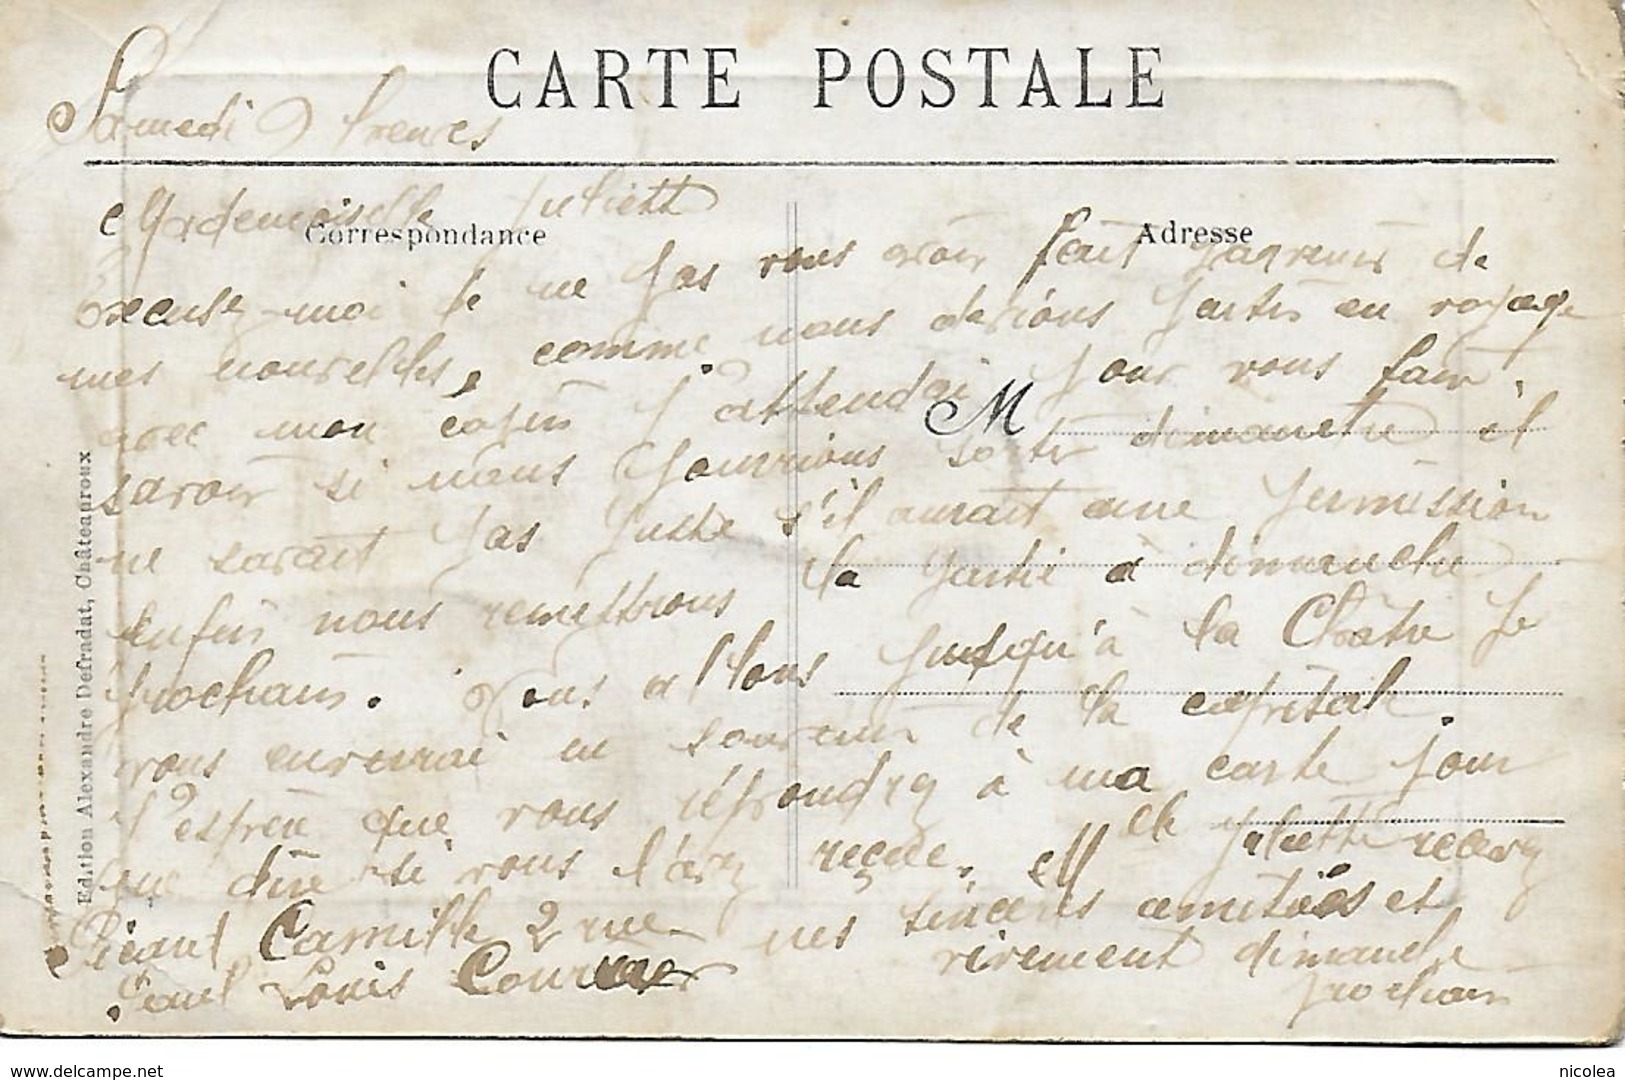 CARTE POSTALE
Samedi 9 heures
Mademoiselle Juliette
Correspondance
Adresse
Excusez-moi de ne pas vous avoir fait parvenir de
mes nouvelles, comme nous devions partir en voyage
avec mon copin j'attendai pour vous fair
M
savoir si nous pourrions sortir dimanche il
ne savait pas juste s'il aurait une permission
Enfin nous remettrons la partie à dimanche
prochain. Nous allons jusqu'à la Châtre je
vous enverrai un souvenir de la capitale.
J'espère que vous répondrez à ma carte pour
me dire si vous l'avez reçue. Melle Juliette recevez
Picaut Camille 2 rue mes sincères amitiés et
Paul Louis Courier vivement dimanche
prochain
Edition Alexandre Defradat, Châteauroux
www.delcampe.net
nicolea